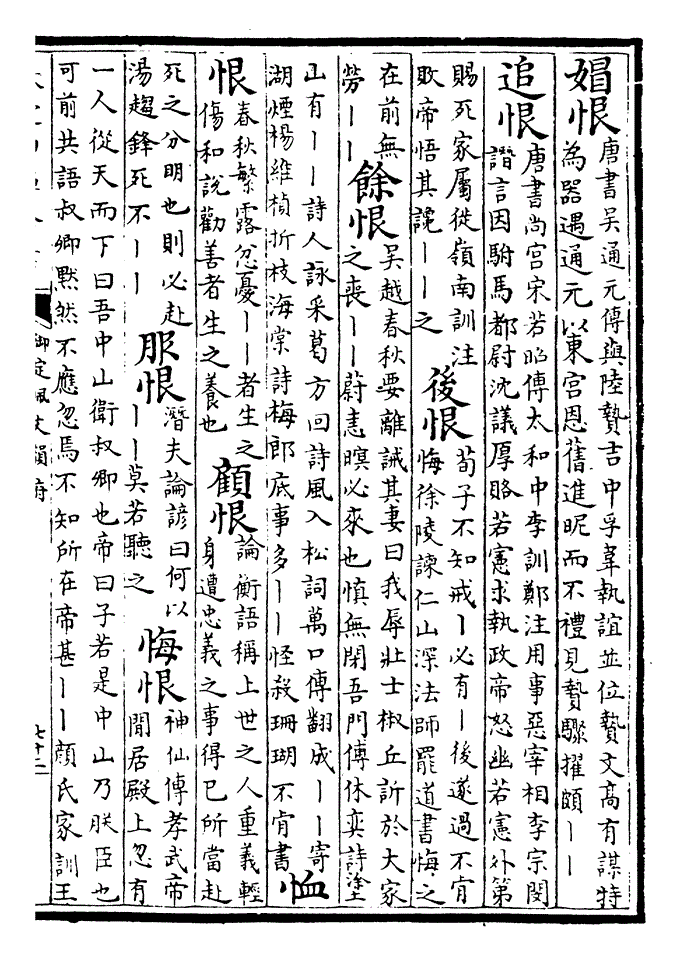 媢恨
唐書吴通元傳與陸贄吉中孚韋執誼並位贄文髙有謀特
為器遇通元以東宫恩舊進昵而不禮見贄驟擢頗丨丨
追恨
唐書尚宫宋若昭傳太和中李訓鄭注用事惡宰相李宗閔
譛言因駙馬都尉沈議厚賂若憲求執政帝怒幽若憲外第
賜死家屬徙嶺南訓注
敗帝悟其䜛丨丨之
後恨
荀子不知戒丨必有丨後遂過不肯
悔徐陵諫仁山深法師罷道書悔之
在前無
勞丨丨
餘恨
吴越春秋要離誡其妻曰我辱壯士椒丘訢於大家
之喪丨丨蔚恚暝必來也慎無閉吾門傅休奕詩塗
山有丨丨詩人詠采葛方回詩風入松詞萬口傳翻成丨丨寄
湖煙楊維楨折枝海棠詩梅郎底事多丨丨怪殺珊瑚不肯書
恤恨
春秋繁露忿憂丨丨者生之
傷和說勸善者生之養也
顧恨
論衡語稱上世之人重義輕
身遭忠義之事得已所當赴
死之分明也則必赴
湯趨鋒死不丨丨
服恨
潛夫論諺曰何以
丨丨莫若聽之
悔恨
神仙傳孝武帝
閒居殿上忽有
一人從天而下曰吾中山衛叔卿也帝曰子若是中山乃朕臣也
可前共語叔卿黙然不應忽焉不知所在帝甚丨丨顔氏家訓王
御定佩文韻府
七十二